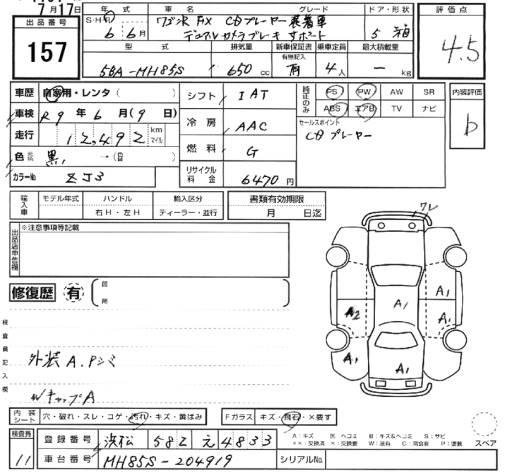 7月17日
出品番号
157
年式 車名 グレード ドア・形状
S・H・R 6年6月 ワゴンR FX CDプレーヤー装着車 5 箱
デュアルカメラブレーキサポート
型式 排気量 新車保証書 有無記入 乗車定員 最大積載量
5BA-MH85S 650cc 有 4人 — kg
評価点
4.5
車歴 自家用・レンタ( )
車検 R9年6月(9日)
走行 12,492 km マイル
色 黒 →( )
カラーNo ZJ3
シフト IAT
冷房 AAC
燃料 G
リサイクル料金 6470円
純正のみ PS PW AW SR
ABS エアB TV ナビ
セールスポイント
CDプレーヤー
内装評価
b
輸入車 モデル年式 ハンドル 輸入区分
右H・左H ディーラー・並行
書類有効期限
月 日迄
※注意事項等記載
修復歴 有
検査員記入欄
外装A.Pシミ
WキャップA
ワレ
A1
A2
A1
A1
A1
A1
A1
内装シート 穴・破れ・スレ・コゲ・汚れ・キズ・黄ばみ
Fガラス キズ・飛石・×要す
検査員
11
登録番号 浜松 582 え 4833
車台番号 MH85S-204919
シリアルNo.
スペア